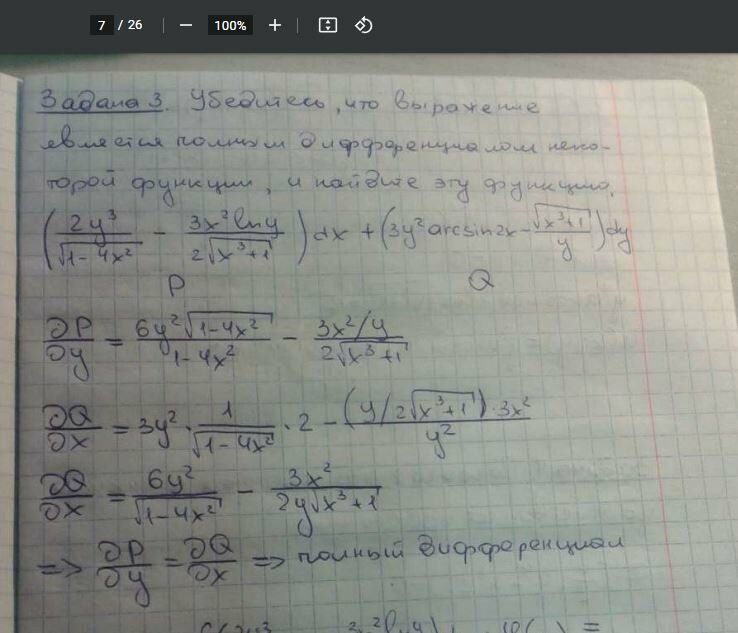 7 / 26 − 100% +
Задача 3. Убедитесь, что выражение
является полным дифференциалом неко-
торой функции, и найдите эту функцию.
(2y³/√(1-4x²) - 3x²lny/2√(x³+1))dx + (3y²arcsin2x - √(x³+1)/y)dy
P Q
∂P/∂y = 6y²√(1-4x²)/(1-4x²) - (3x²/y)/2√(x³+1)
∂Q/∂x = 3y² · 1/√(1-4x²) · 2 - (y/2√(x³+1))·3x²/y²
∂Q/∂x = 6y²/√(1-4x²) - 3x²/2y√(x³+1)
=> ∂P/∂y = ∂Q/∂x => полный дифференциал